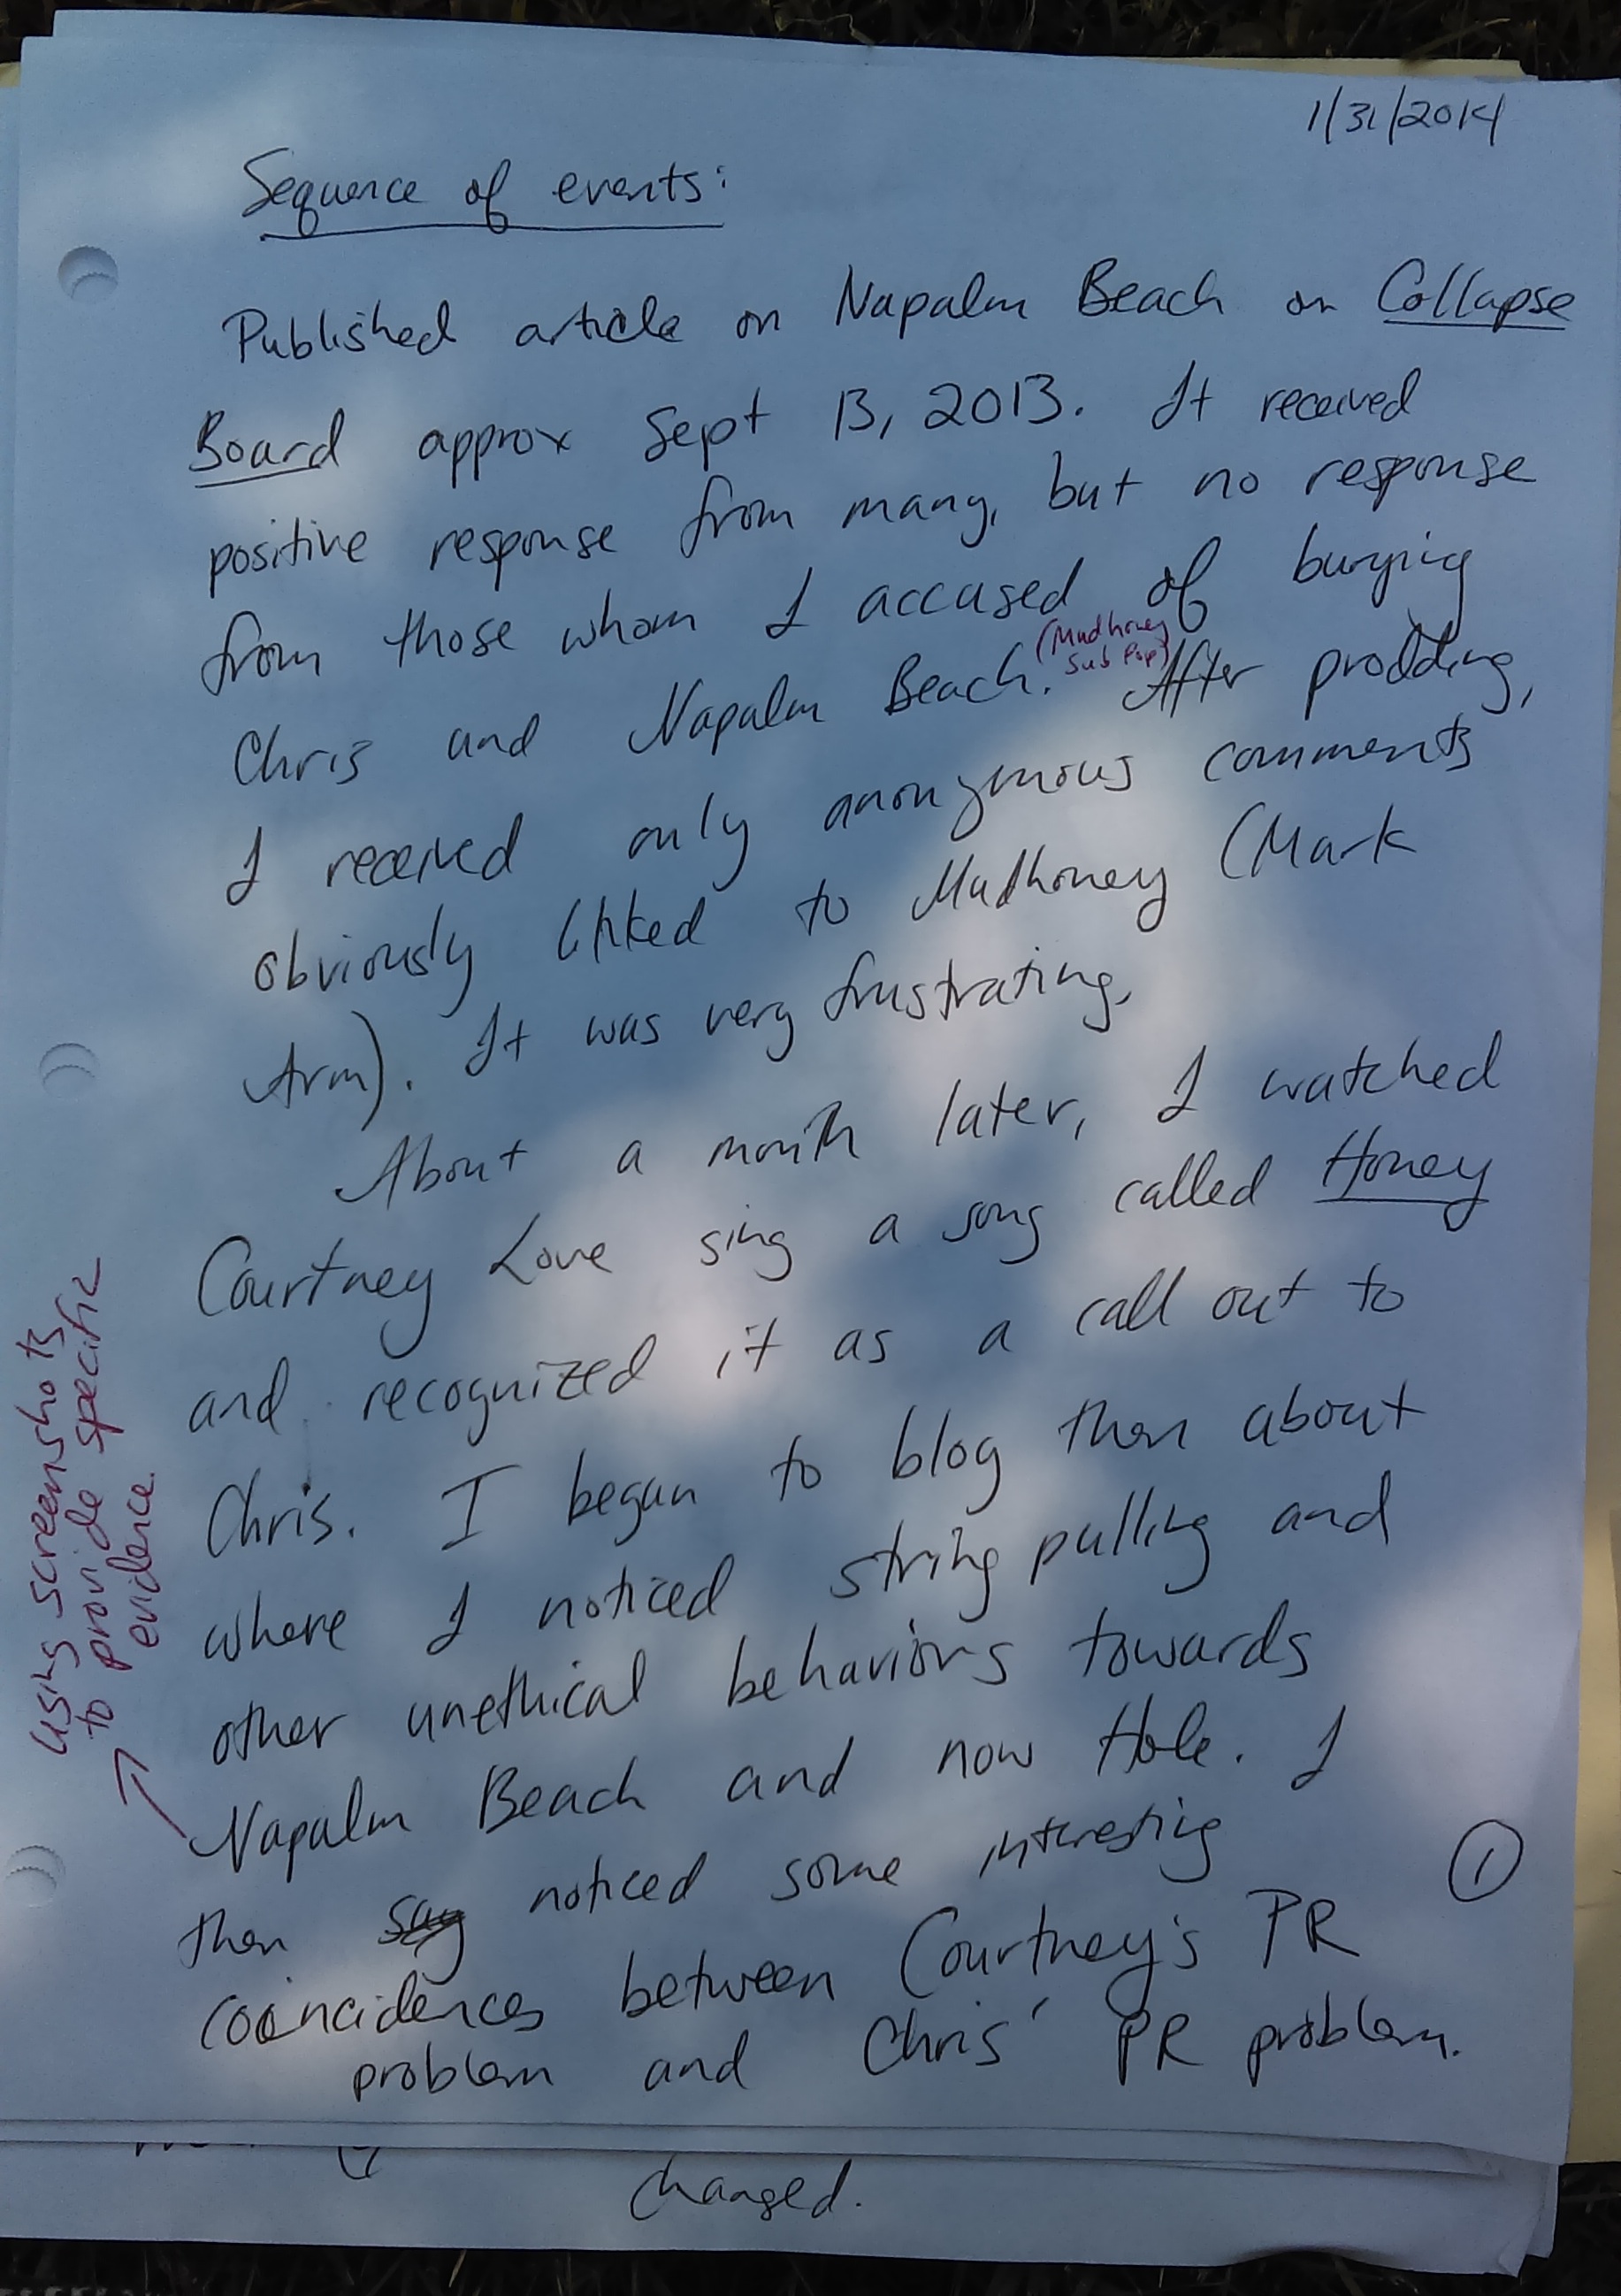 1/31/2014
Sequence of events:
Published article on Napalm Beach on Collapse
Board approx Sept 13, 2013. It received
positive response from many, but no response
from those whom I accused of burying
(Mudhoney
Sub Pop)
Chris and Napalm Beach. After prodding,
I received only anonymous comments
obviously linked to Mudhoney (Mark
Arm). It was very frustrating.
About a month later, I watched
Courtney Love sing a song called Honey
and recognized it as a call out to
Chris. I began to blog then about
where I noticed string pulling and
other unethical behaviors towards
Napalm Beach and now Hole. I
then say noticed some interesting
coincidences between Courtney's PR
problem and Chris' PR problem.
1
using screenshots
to provide specific
evidence
changed.